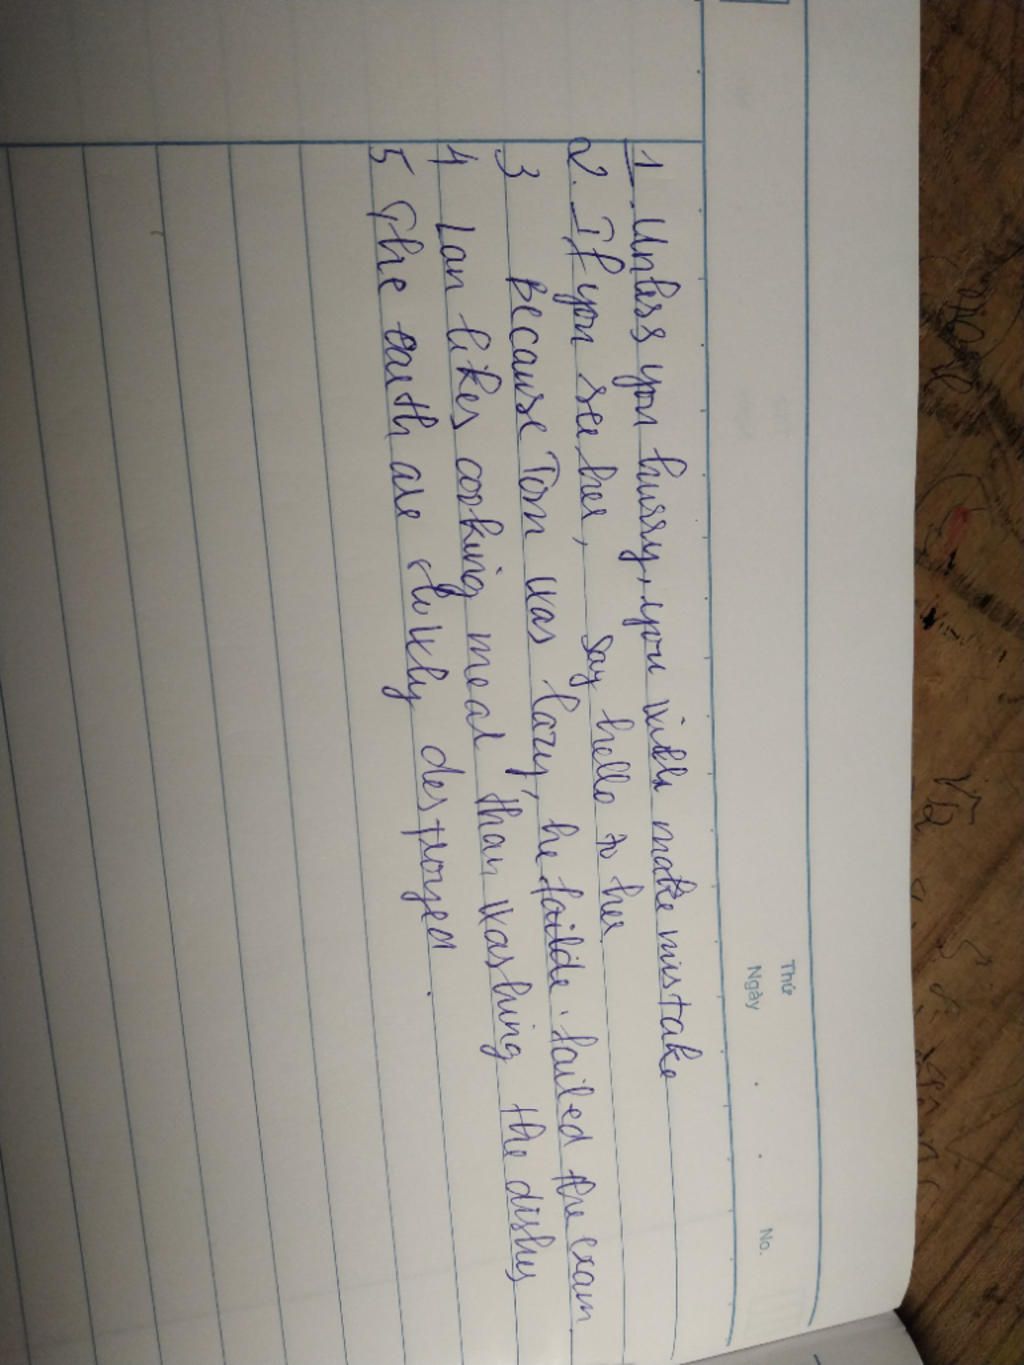 Thứ
Ngày
No.
1. Unless you hurry, you will make mistake
2. If you see her, say hello to her
3 Because Tom was lazy, he failde. failed the exam
4 Lan likes cooking meal than washing the dishes
5 The earth are slowly destroyed.